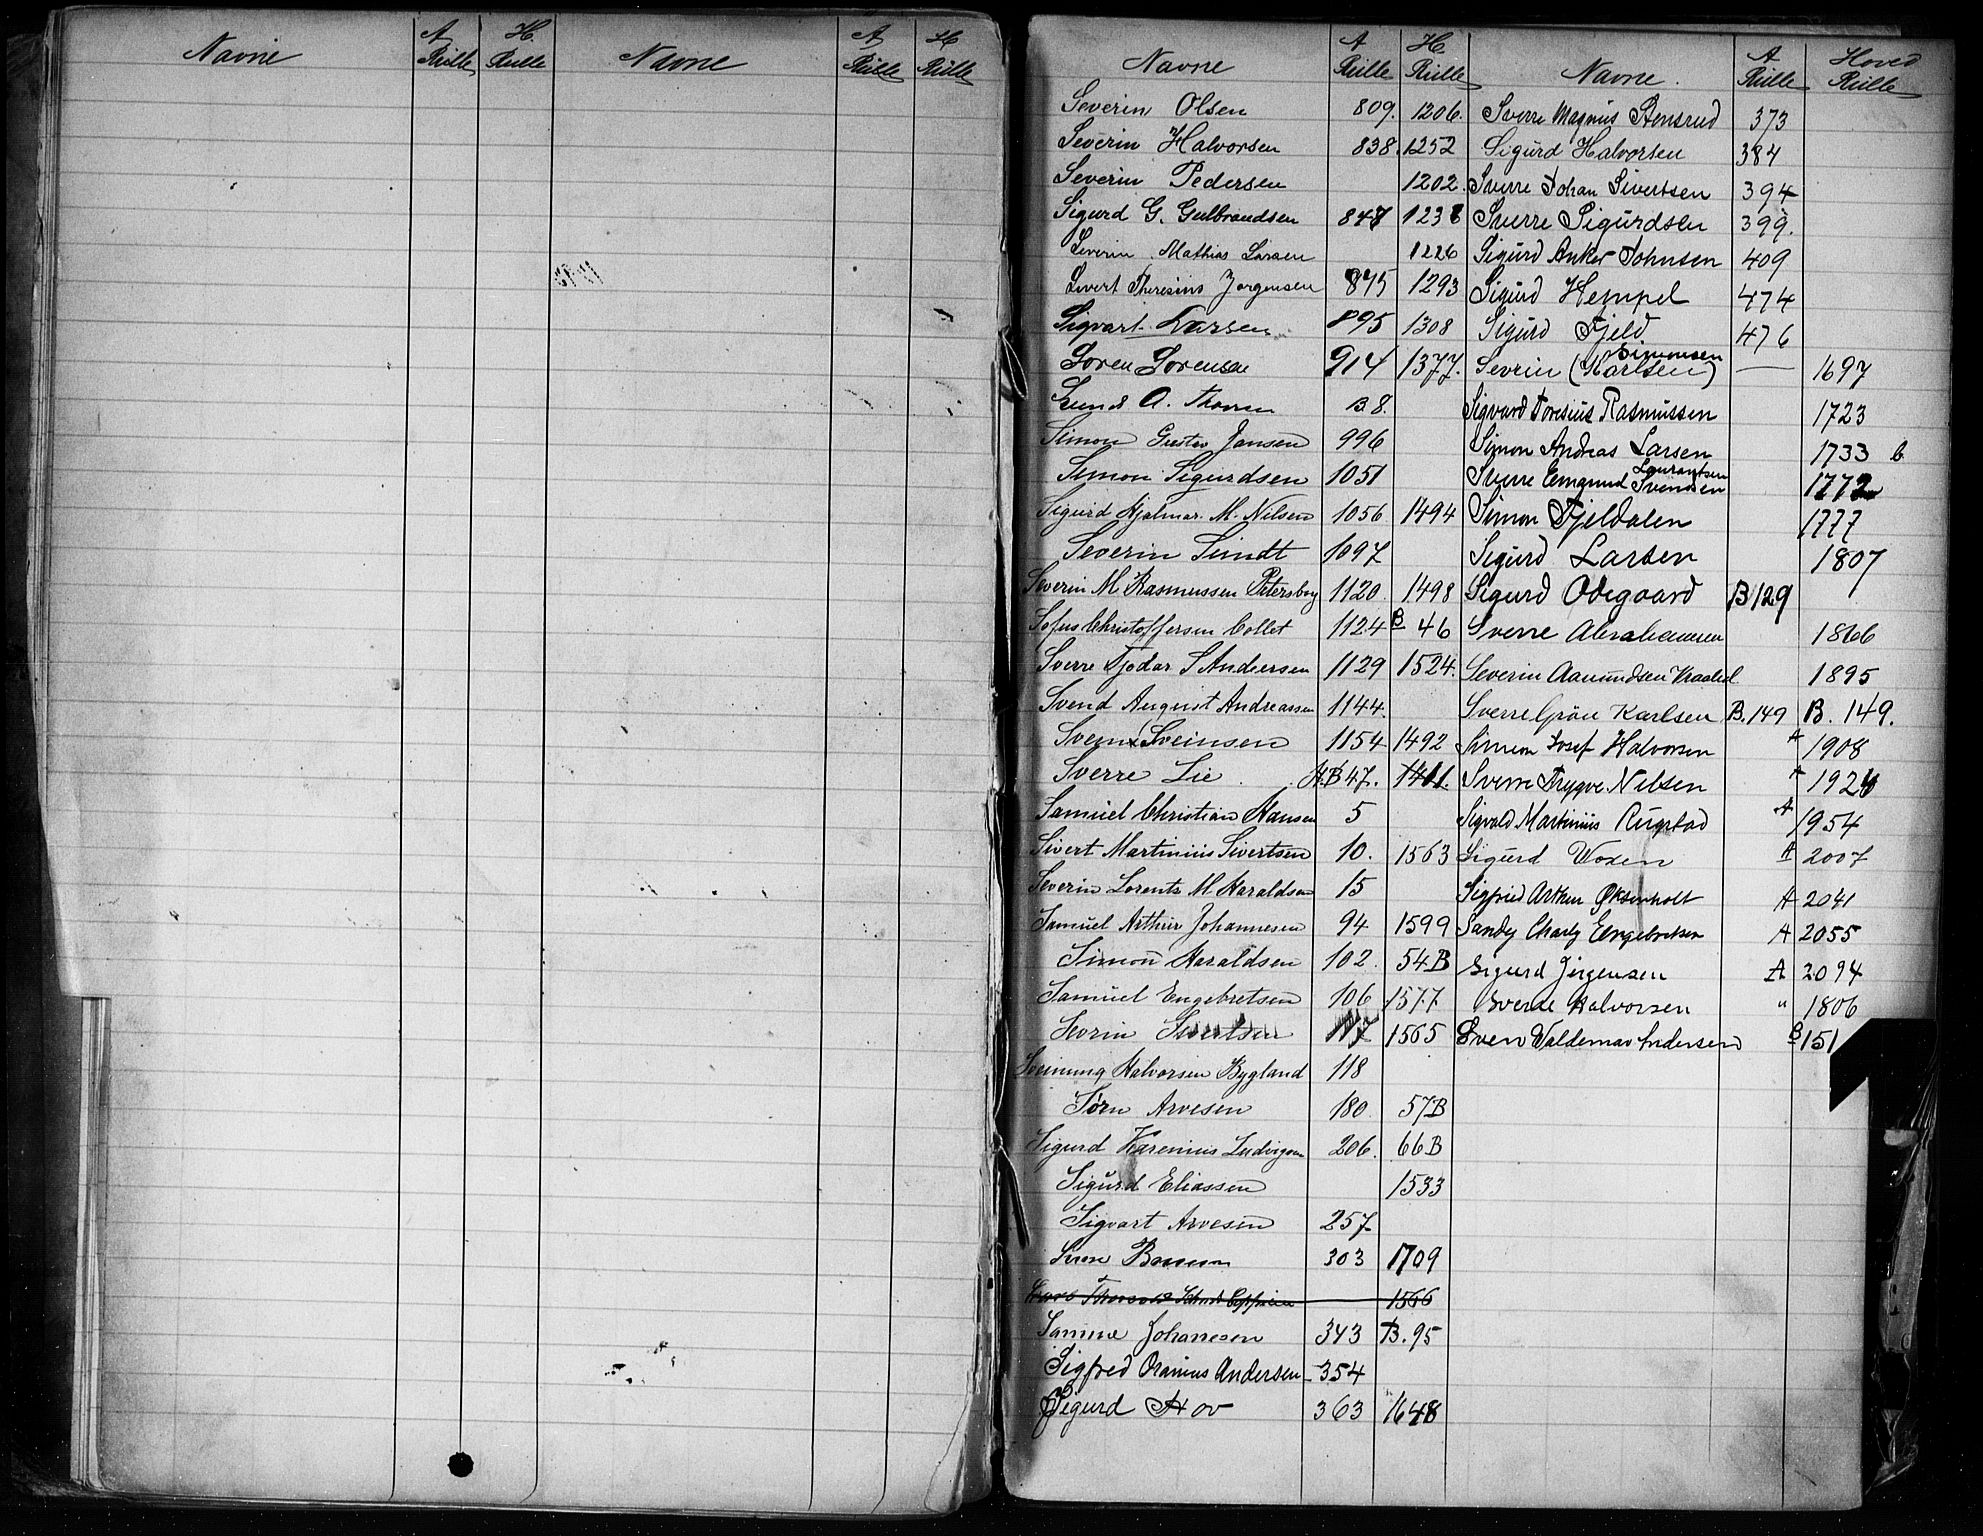 Navne A Rulle H Rulle Navne A Rulle H Rulle
Navne A Rulle H Rulle
Severin Olsen 809. 1206.
Severin Halvorsen 838. 1252
Severin Pedersen 1202.
Sigurd G. Gulbrandsen 847 1238
Severin Mathias Larsen 1226
Sivert Theresius Jørgensen 875 1293
Sigvart Larsen 895 1308
Søren Sørensen 914 1377.
A. B 8.
Simon Gustav Jansen 996
Simon Sigurdsen 1051
Sigurd Hjalmar M. Nilsen 1056 1494
Severin Sundt 1097
Severin M. Rasmussen Petersborg 1120 1498
Sofus Christoffersen Collet 1124 B 46
Sverre Fjodar S Andersen 1129 1524.
Svend August Andreassen 1144.
Svein Sveinsen 1154 1492
Sverre Lie H.B 47. 1411.
Samuel Christian Hansen 5
Sivert Martinius Sivertsen 10. 1563
Severin Lorents M Haraldsen 15
Samuel Arthur Johannesen 94 1599
Simon Haraldsen 102. 54B
Samuel Engebretsen 106 1577
Sevrin Sivertsen 117 1565
Sveinung Halvorsen Bygland 118
Sørn Arvesen 180 57B
Sigurd Karenius Ludvigsen 206. 66B
Sigurd Eliassen 1533
Sigvart Arvesen 257
303 1709
1566
Johanesen 343 B. 95
Sigfred Oranius Andersen 354
Sigurd Hov 363 1648
Navne. A Rulle Hoved Rulle
Sverre Magnus Stensrud 373
Sigurd Halvorsen 384
Sverre Johan Sivertsen 394
Sverre Sigurdsen 399.
Sigurd Anker Johnsen 409
Sigurd Hempel 474
Sigurd Fjeld 476
Simonsen
Sevrin (Karlsen) — 1697
Sigvard Toresius Rasmussen 1723
Simon Andreas Larsen 1733 b
Laurantsen
Sverre Emgund Svendsen 1772
Simon Fjeldalen 1777
Sigurd Larsen 1807
Sigurd Odegaard B 129
Sverre Abrahamsen 1866
Severin Aamundsen Kraabel 1895
Sverre Grøn Karlsen B. 149 B. 149.
Simeon Josef Halvorsen A 1908
Sverre Trygve Nilsen A 1926
Sigvald Martinius Rugstad A 1954
Sigurd Woxen A 2007
Sigfried Arthur Øksenholt A 2041
Sandy Charly Engebretsen A 2055
Sigurd Jørgensen A 2094
Sverre Halvorsen " 1806
Sven Valdemar Andersen B 151